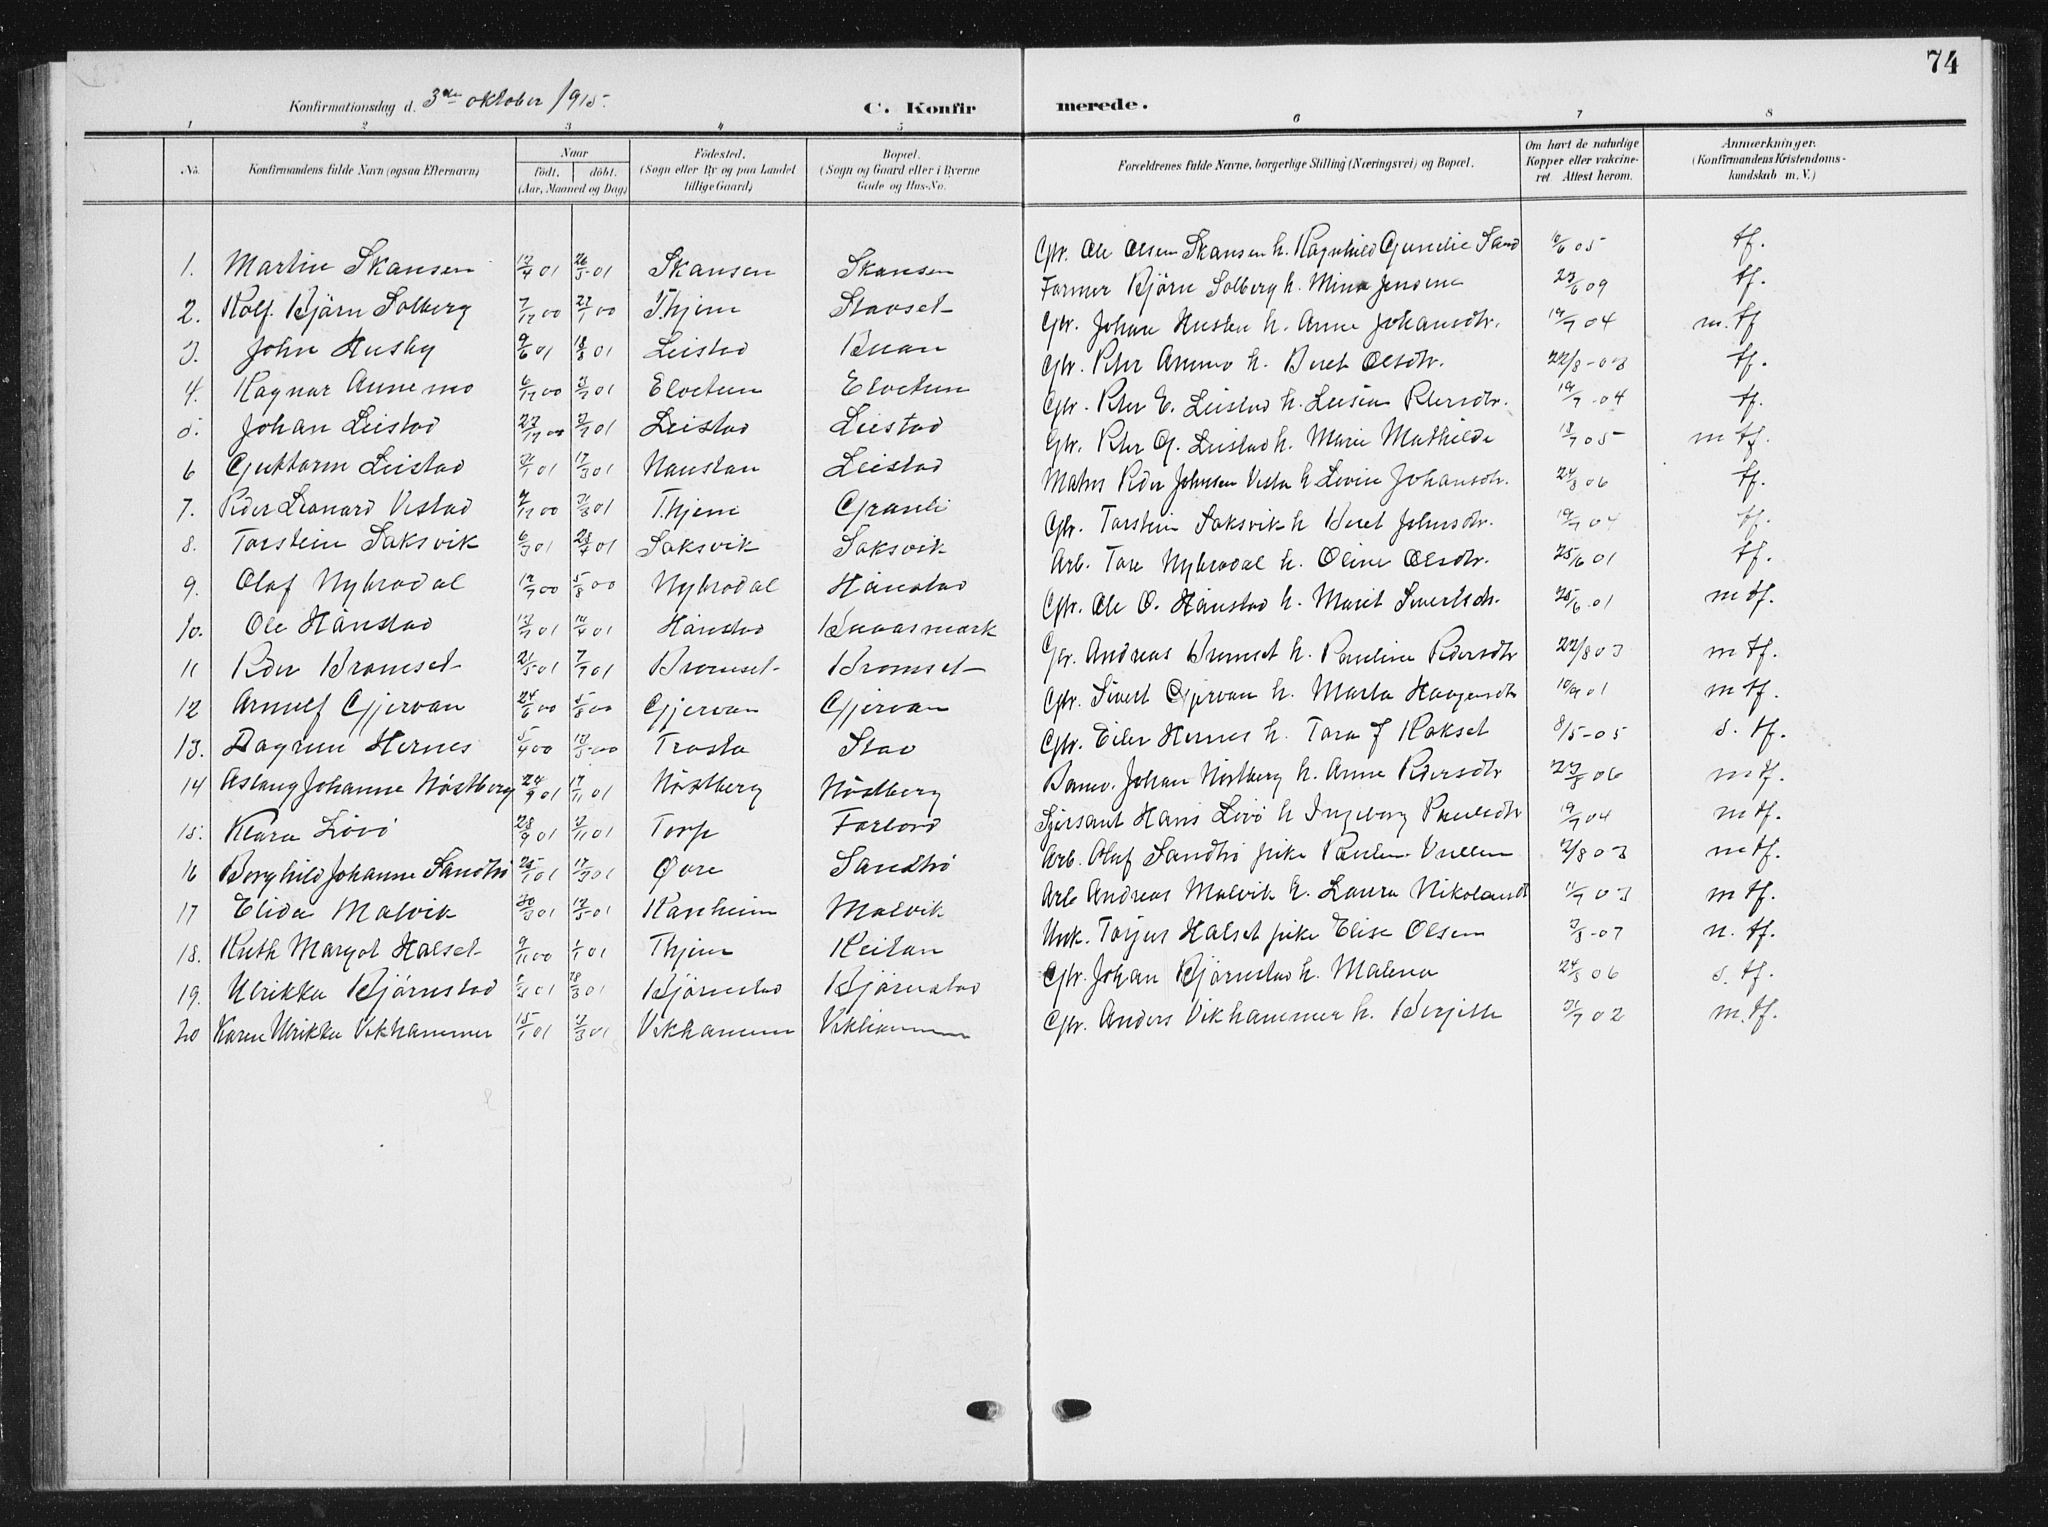 74
Konfirmationsdag d. 3die oktober 1915. C. Konfirmerede.
1 2 3 4 5 6 7 8
No. Konfirmandens fulde Navn (ogsaa Efternavn) Naar födt. döbt. (Aar, Maaned og Dag) Födested. (Sogn eller By og paa Landet tillige Gaard) Bopæl. (Sogn og Gaard eller i Byerne Gade og Hus-No. Forældrenes fulde Navne, borgerlige Stilling (Næringsvei) og Bopæl. Om havt de naturlige Kopper eller vakcineret. Attest herom. Anmærkninger. (Konfirmandens Kristendomskundskab m. V.)
1. Martin Skansen 01 26/5 01 Skansen Skansen Gbr. Ole Olsen Skansen h. Ragnhild 05 tf.
2. Rolf Bjørn Solberg 7/12 00 00 Thjem Stavset Farmer Bjørn Solberg h. Mina Jensine 09 tf.
3. John Husby 9/6 01 18/8 01 Leistad Buan Gbr. Johan h. Anne Johansdtr. 19/7 04 m. tf
4. Ragnar Annemo 6/12 00 01 Elvetun Elvetun Gbr. Peter Annemo h. Beret Olsdtr. 22/8-03 tf.
5. Johan Leistad 00 01 Leistad Leistad Gbr. Peter E. Leistad h. Peersdtr. 19/7-04 tf.
6 Guttorm Leistad 01 01 Naustan Leistad Gbr. Peter G. Leistad h. Marie Mathilde 18/7 05 m tf.
7. Peder Leonard Vestad 00 01 Thjem Granli Matros Peder Johnsen h Johansdtr. 24/8 06 tf.
8. Torstein Saksvik 6/3 01 28/4 01 Saksvik Saksvik Gbr. Torstein Saksvik h Beret Johnsdtr. 19/7 04 tf.
9. Olaf Nybrodal 00 5/8 00 Nybrodal Hånstad Arb. Tore Nybrodal h. Oline Olsdtr. 25/6 01 tf.
10. Ole Hånstad 01 01 Hånstad Buaasmark Gbr. Ole O. Hånstad h. Marit Sivertsdtr. 25/6 01 m tf.
11 Peder Bromset 21/5 01 7/7 01 Bromset Bromset Gbr. Andreas Bromset h. Pauline Pedersdtr 22/8 03 m tf.
12 Arnulf Gjervan 24/6 00 5/8 00 Gjervan Gjervan Gbr. Sivert Gjervan h. Marta Haagensdtr 10/9 01 m tf.
13. Dagrun Hernes 5/4 00 00 Trosta Stav Gbr. Eiler Hernes h. Tora f Rokset 8/5-05 s. tf.
14 Aslaug Johanne Nøstberg 24/9 01 17/11 01 Nøstberg Nøstberg Banev. Johan Nøstberg h. Anne Pedersdtr 06 m tf.
15. Klara Lövö 28/9 01 01 Torp Forbord Sjersant Hans Lövö h Ingeborg Paulsdtr 19/7 04 m tf.
16 Borghild Johanne Sandtrö 25/1 01 17/3 01 Øvre Sandtrö Arb. Olaf Sandtrö pike Vullum 12/8 03 m tf.
17 Elida Malvik 30/3 01 01 Ranheim Malvik Arb Andreas Malvik h. Laura Nikolaisdt 11/7 03 m tf.
18. Ruth Margot Halset 9/11 00 1/1 01 Thjem Reitan Torjus Halset pike Elise Olsen 3/3-07 n. tf.
19. Ulrikka Bjørnstad 01 28/3 01 Bjørnstad Bjørnstad Gbr. Johan Bjørnstad h. Malena 06 s. tf.
20 Karen Ulrikka Vikhammer 15/1 01 01 Vikhammer Vikhammer Gbr. Anders Vikhammer h. Berjitte 02 m. tf.